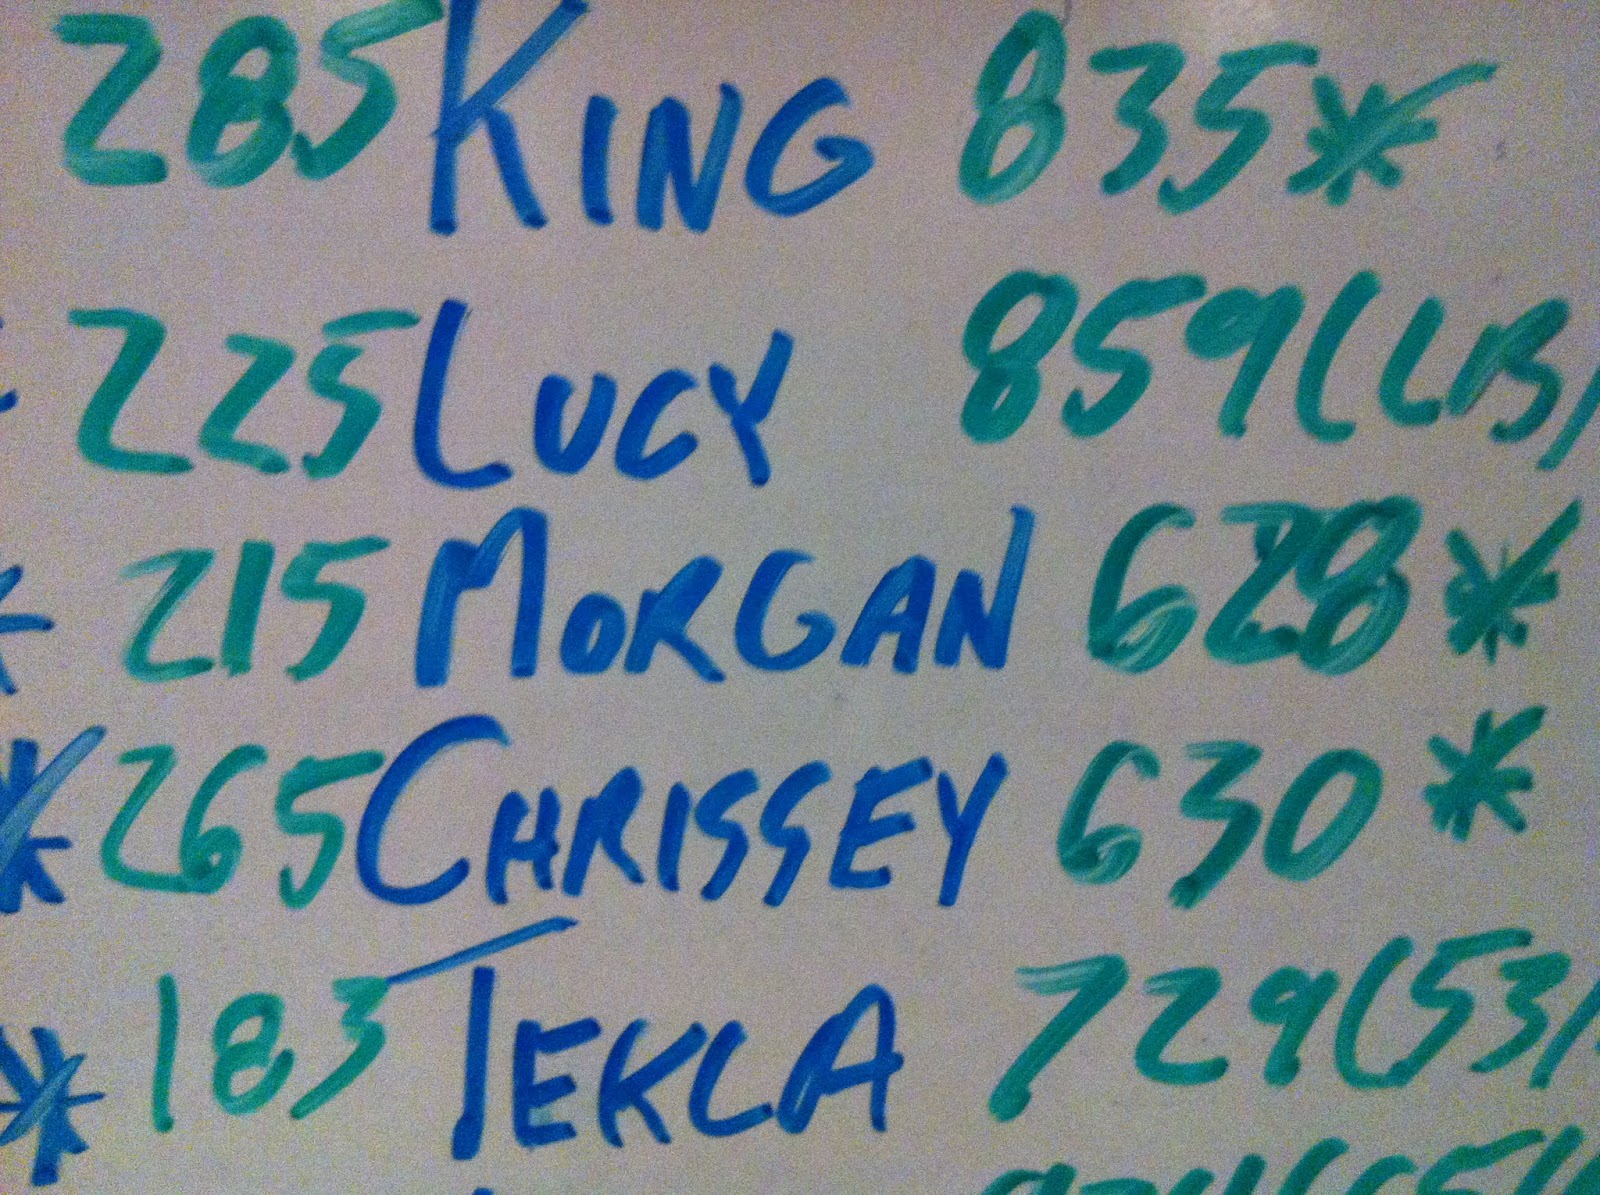 285 KING 835*
225 LUCY 859(LB)
* 215 MORGAN 628*
* 265 CHRISSEY 630*
* 183 TEKLA 729(53)